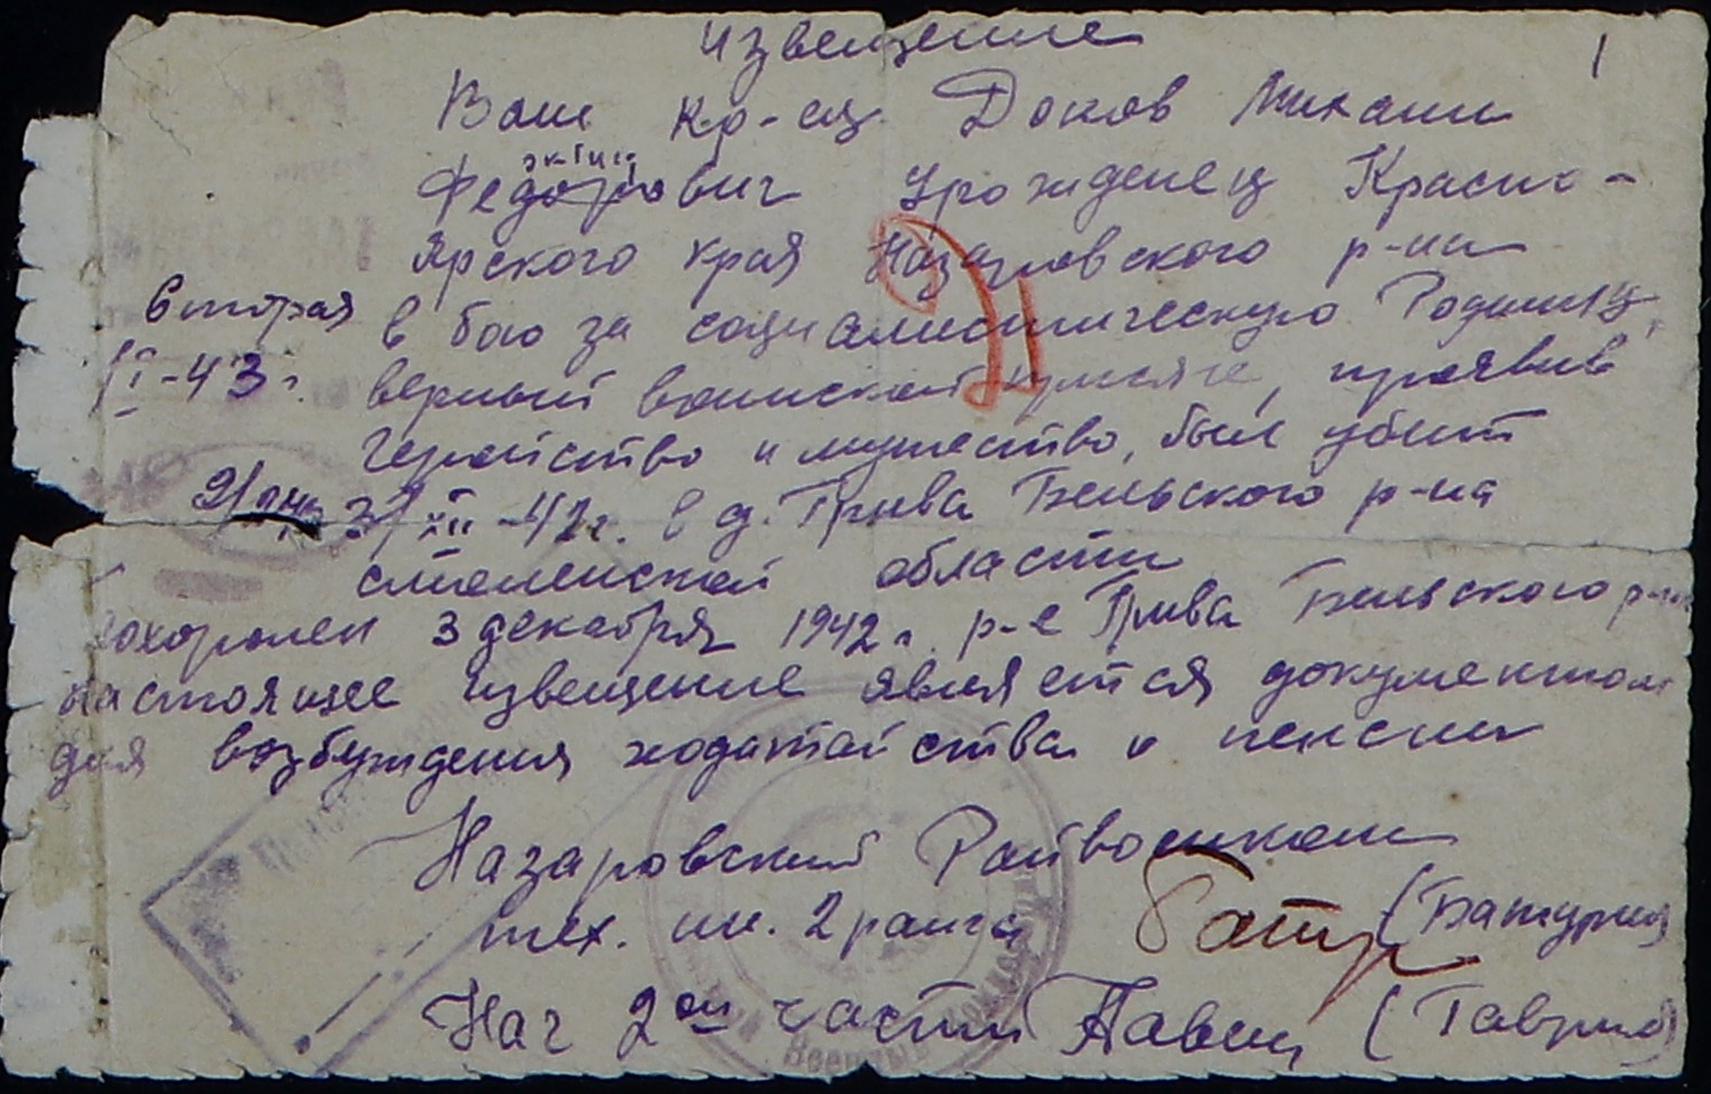 извещение
1
Ваш кр-ец Доков Михаил
Федорович урожденец Красно-
ярского края Назаровского р-на
вторая
в бою за социалистическую Родину,
I-43 г.
верный воинской присяге, проявив
геройство и мужество, был убит
3/XII-42 г. в д. Грива Бельского р-на
смоленской области
похоронен 3 декабря 1942 г. р-е Грива Бельского р-на
настоящее извещение является документом
для возбуждения ходатайства о пенсии
Назаровский Райвоенком
тех. ин. 2 ранга (Батурин)
Нач 2ой части (Гаврил)